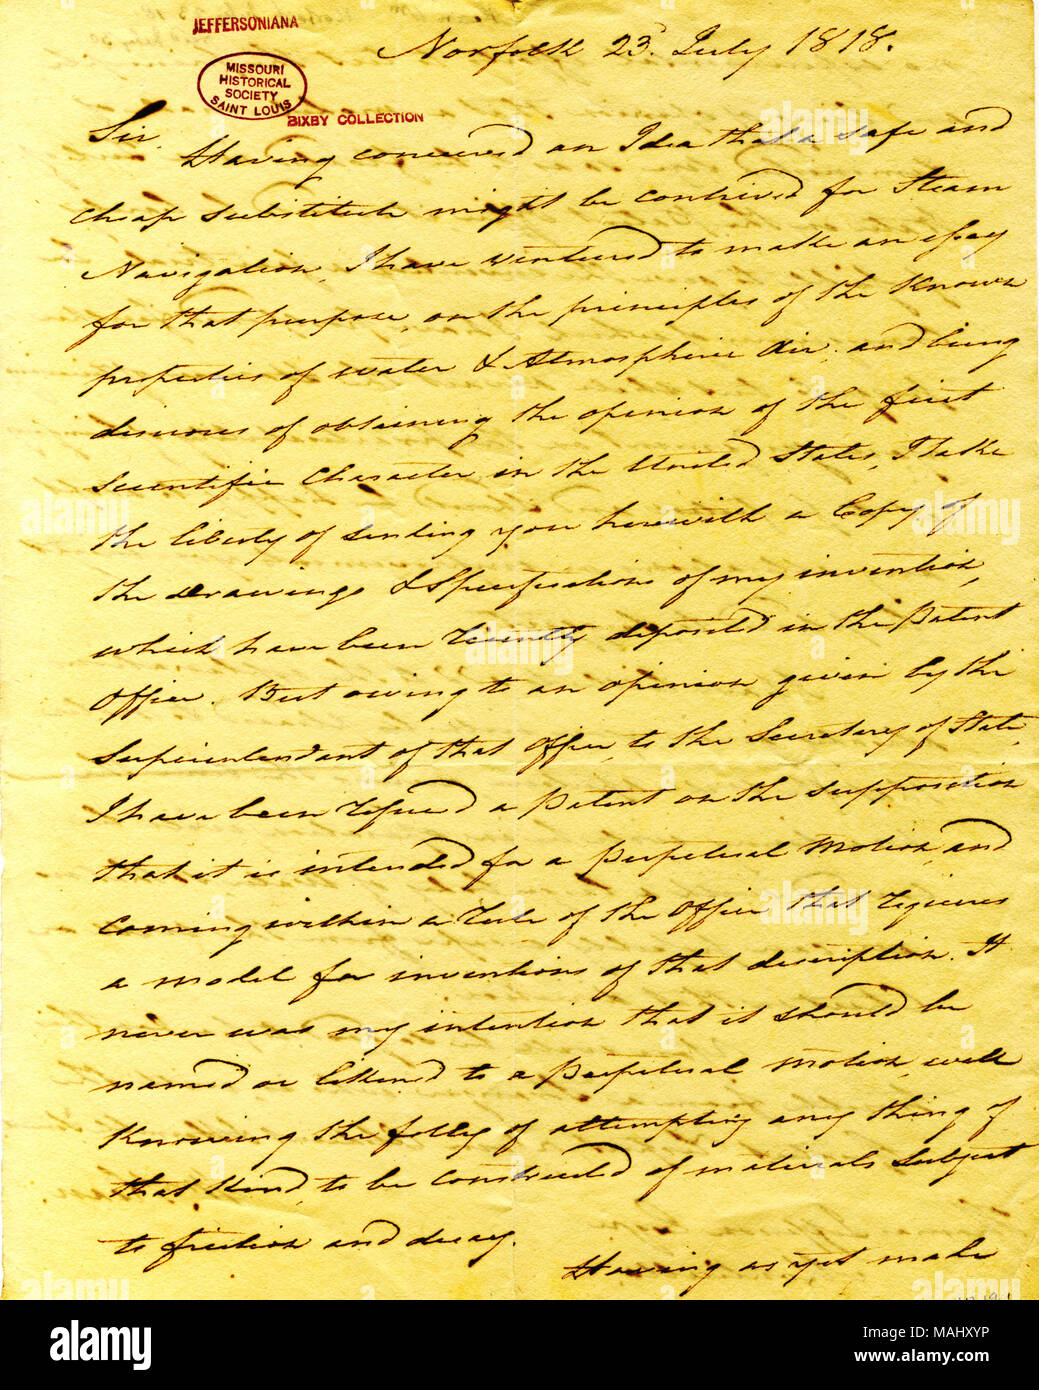 JEFFERSONIANA
MISSOURI
HISTORICAL
SOCIETY
SAINT LOUIS
BIXBY COLLECTION
Norfolk 23d July 1818.
Sir,
Having conceived an Idea that a safe and
cheap substitute might be contrived for Steam
Navigation, I have ventured to make an essay
for that purpose, on the principles of the known
properties of water & Atmospheric Air. and being
desirous of obtaining the opinion of the first
Scientific Character in the United States, I take
the liberty of sending you herewith a Copy of
the drawings & Specifications of my invention,
which have been recently deposited in the Patent
Office. But owing to an opinion given by the
Superintendant of that Office, to the Secretary of State,
I have been refused a Patent on the supposition
that it is intended for a perpetual Motion, and
coming within a rule of the Office that requires
a model for inventions of that description. It
never was my intention that it should be
named or likened to a perpetual motion, well
knowing the folly of attempting any thing of
that kind, to be constructed of materials subject
to friction and decay.
Having as yet made
alamy
Image ID: MAHXYP
www.alamy.com